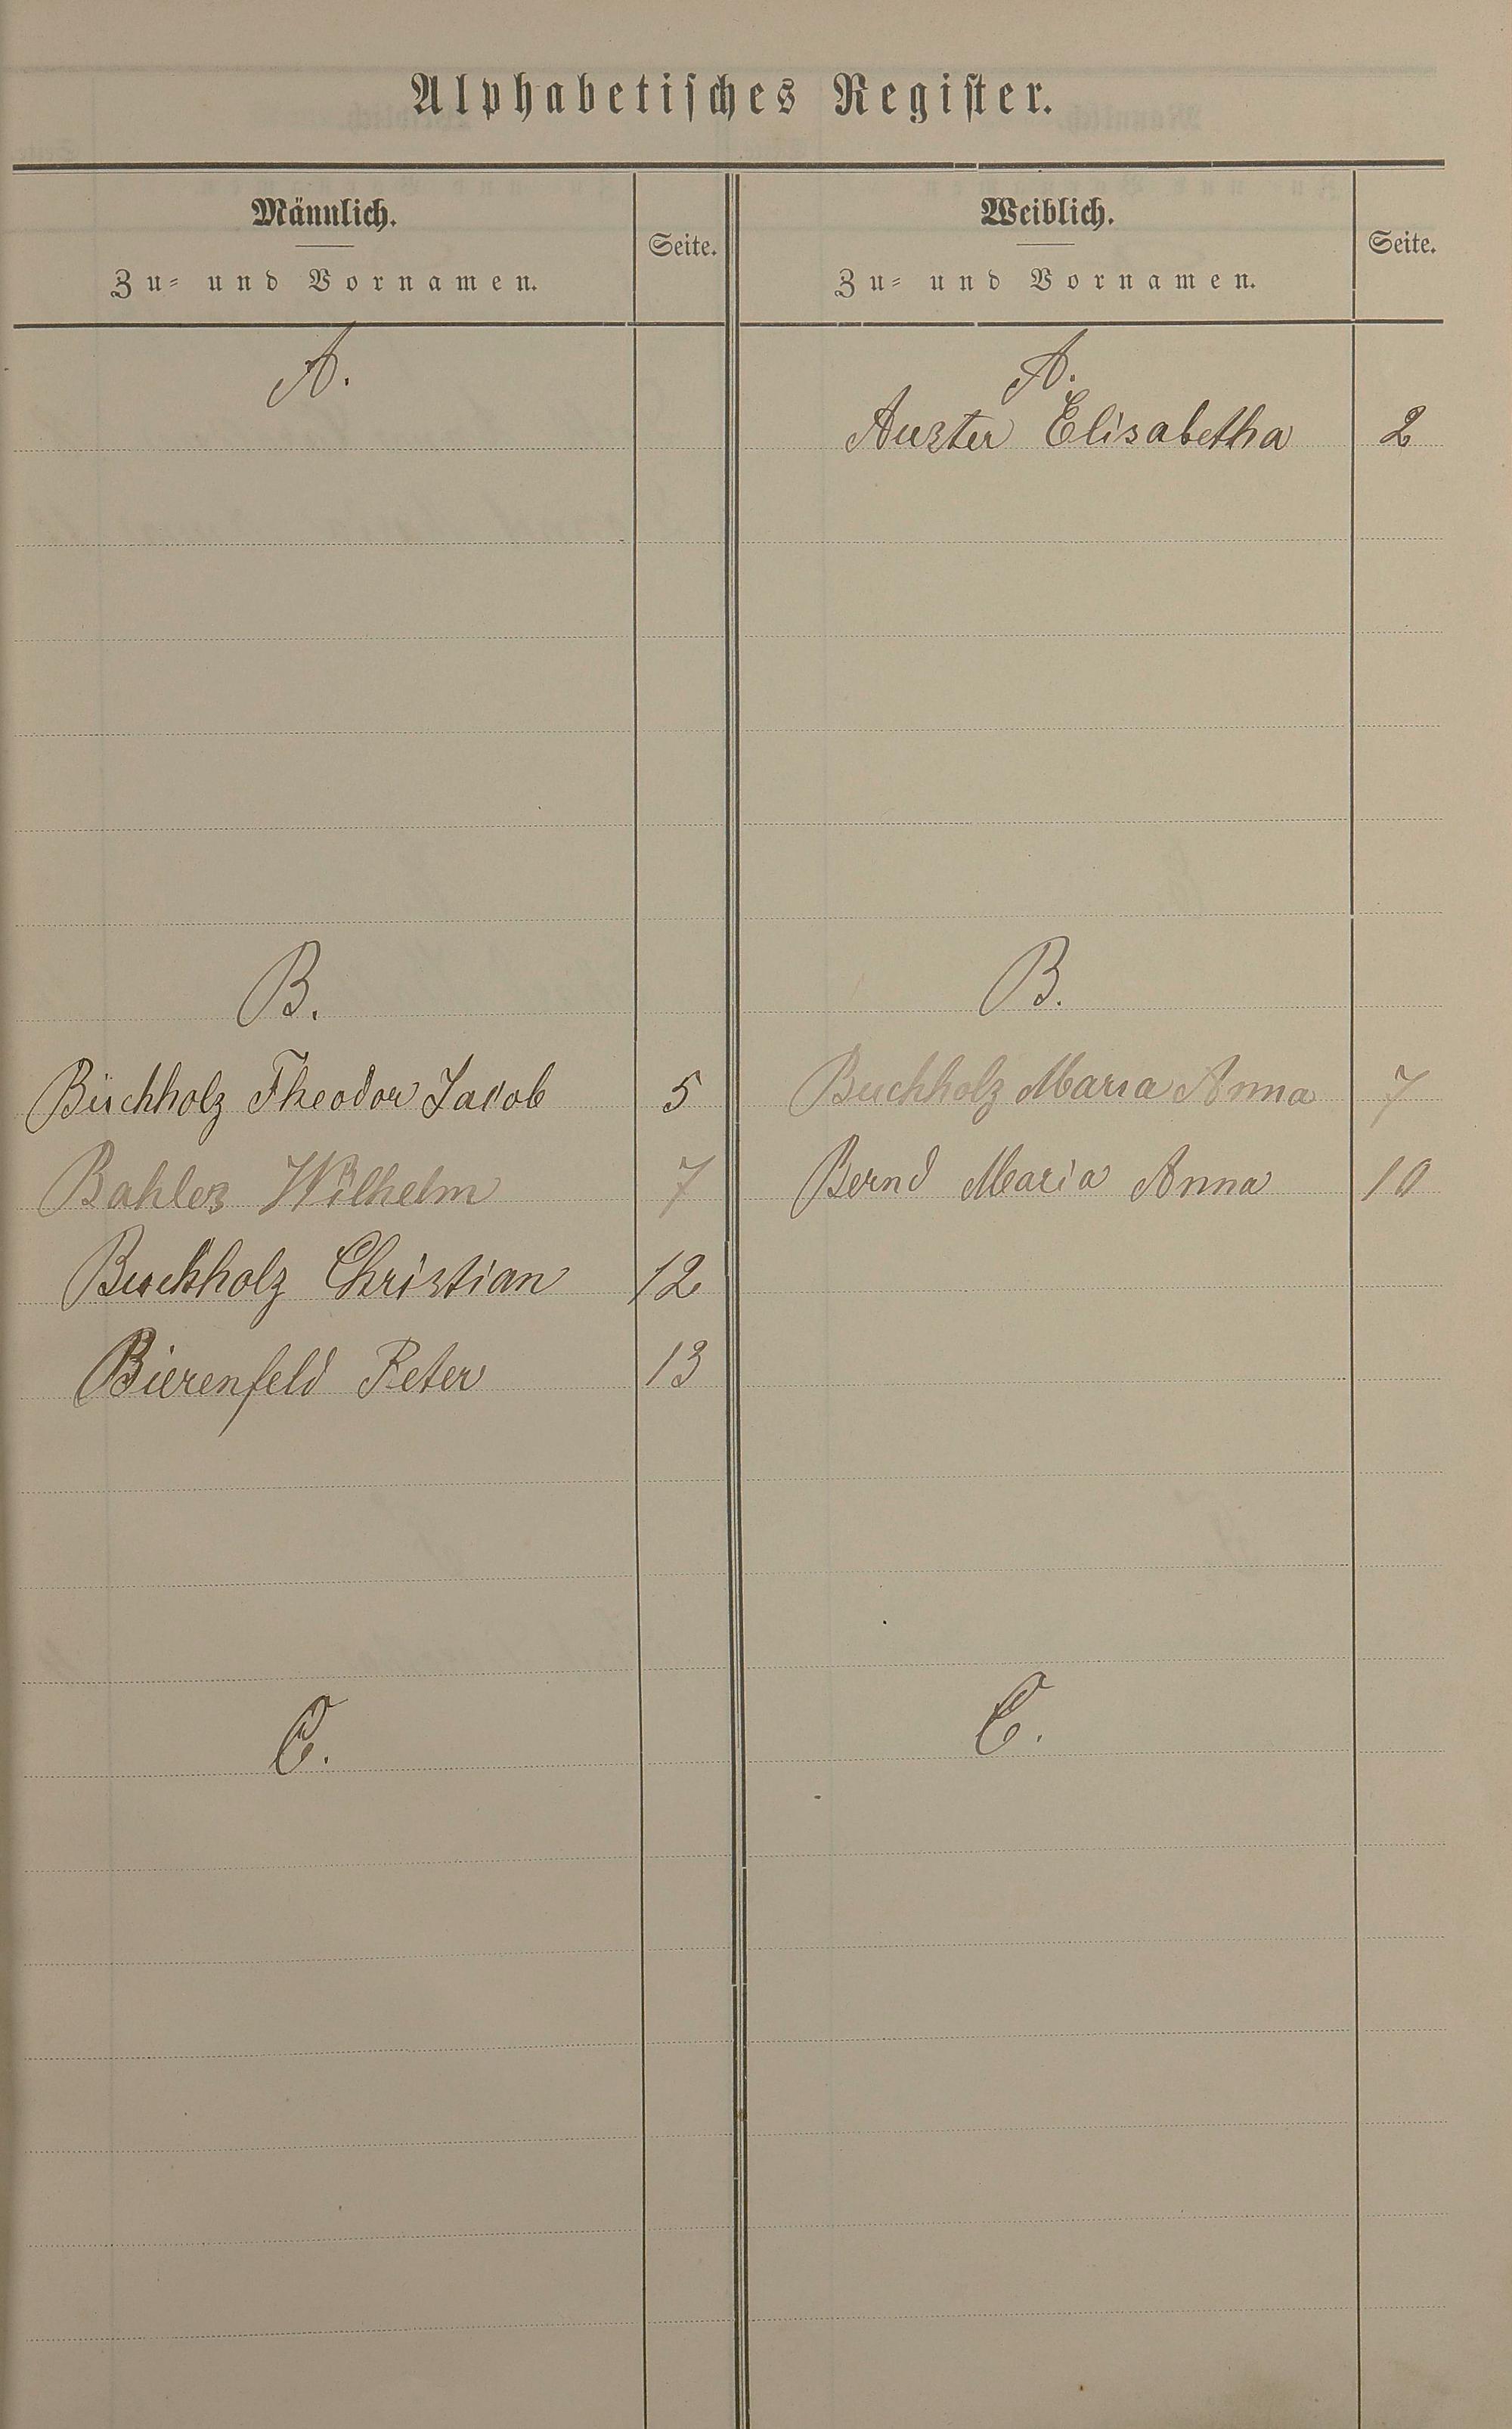 Alphabetisches Register.
Männlich.
Zu- und Vornamen.
Seite.
Weiblich.
Zu- und Vornamen.
Seite.
A.
A.
Auster Elisabetha 2
B.
B.
Buchholz Theodor Jacob 5
Buchholz Maria Anna 7
Bahles Wilhelm 7
Bernd Maria Anna 10
Buchholz Christian 12
Bierenfeld Peter 13
C.
C.